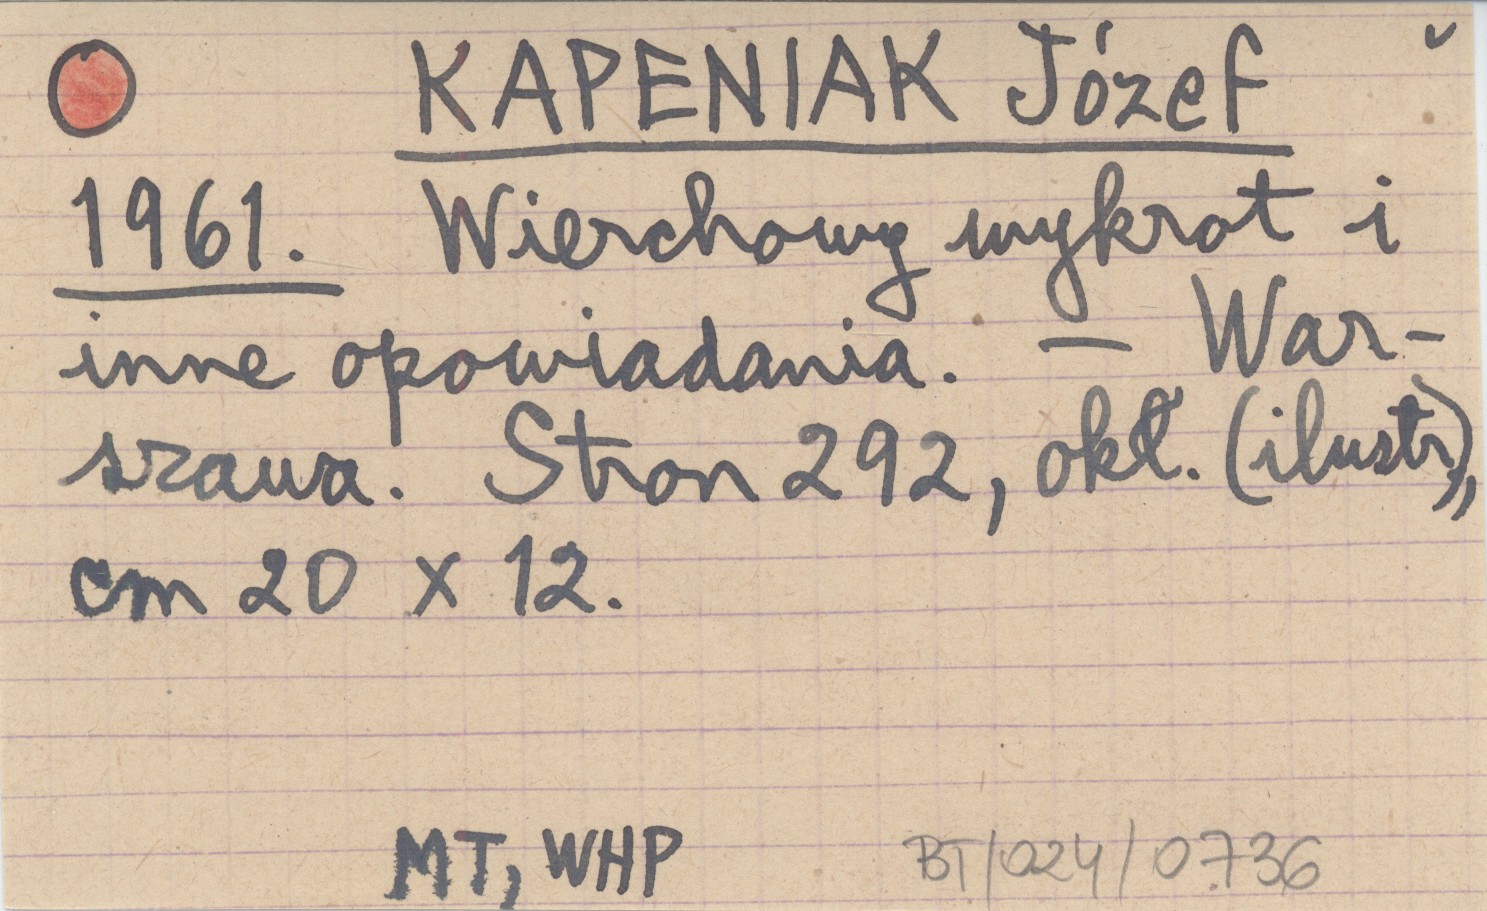 KAPENIAK Józef
1961. Wierchowy wykrot i
inne opowiadania. — War-
szawa. Stron 292, okł. (ilustr),
cm 20 x 12.
MT, WHP BT/024/0736